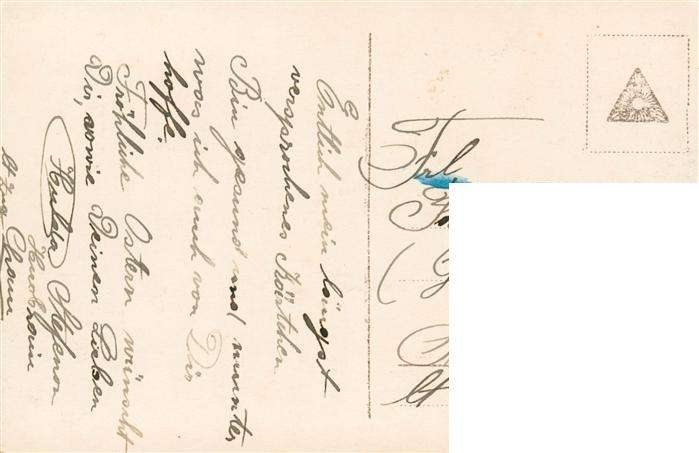 Entlich mein längst
versprochenes Kärtchen
Bin gesund und munter
was ich auch von Dir
hoffe.
Fröhliche Ostern wünscht
Dir, sowie Deinen Lieben
Hulda
Frl.